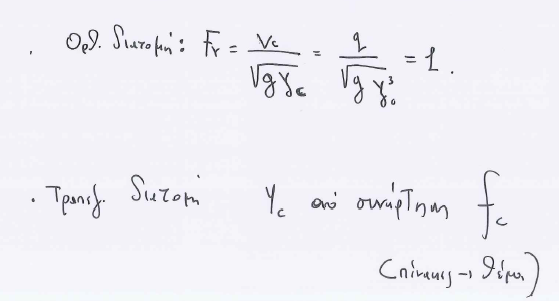 . Ορθ. διατομή: Fr = Vc / √g yc = q / √g yo³ = 1.
. Τραπεζ. διατομή yc από συνάρτηση fc
(πίνακας → θέμα)